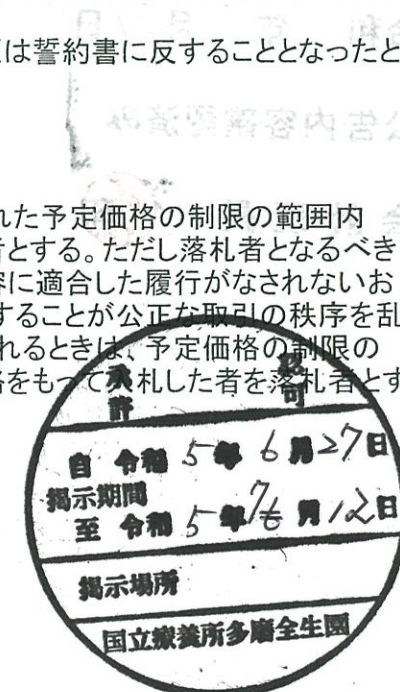 は誓約書に反することとなったと
れた予定価格の制限の範囲内
者とする。ただし落札者となるべき
容に適合した履行がなされないお
することが公正な取引の秩序を乱
れるときは、予定価格の制限の
格をもって入札した者を落札者とす
許 可
自 令和 5 年 6 月 27 日
掲示期間
至 令和 5 年 7 月 12 日
掲示場所
国立療養所多磨全生園